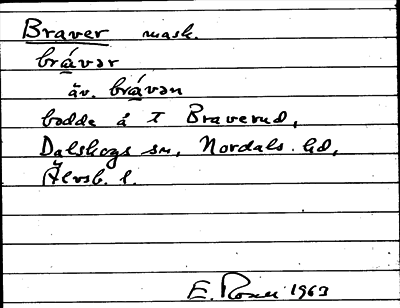 Braver mask.
brávər
äv. brávən
bodde å T Braverud,
Dalskogs sn, Nordals hd,
Älvsb. l.
E. Rosell 1963